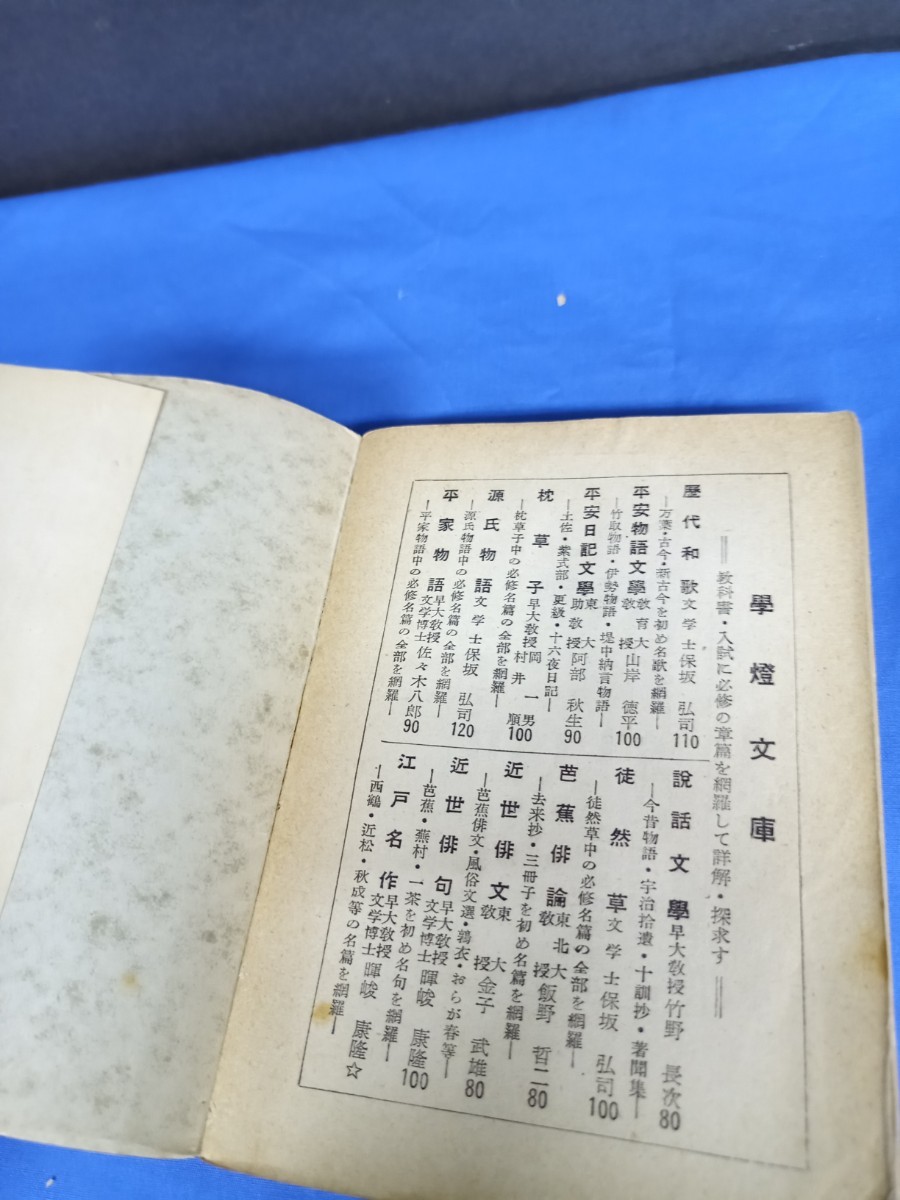 學燈文庫
══教科書・入試に必修の章篇を網羅して詳解・探求す══
歴代和歌 文学士 保坂弘司 110
―万葉・古今・新古今を初め名歌を網羅―
平安物語文學 教育大教授 山岸徳平 100
―竹取物語・伊勢物語・堤中納言物語―
平安日記文學 東大助教授 阿部秋生 90
―土佐・紫式部・更級・十六夜日記―
枕草子 早大教授 岡一男 村井順 100
―枕草子中の必修名篇の全部を網羅―
源氏物語 文学士 保坂弘司 120
―源氏物語中の必修名篇の全部を網羅―
平家物語 早大教授 文学博士 佐々木八郎 90
―平家物語中の必修名篇の全部を網羅―
説話文學 早大教授 竹野長次 80
―今昔物語・宇治拾遺・十訓抄・著聞集―
徒然草 文学士 保坂弘司 100
―徒然草中の必修名篇の全部を網羅―
芭蕉俳論 東北大教授 飯野哲二 80
―去来抄・三冊子を初め名篇を網羅―
近世俳文 東大教授 金子武雄 80
―芭蕉俳文・風俗文選・鶉衣・おらが春等―
近世俳句 早大教授 文学博士 暉峻康隆 100
―芭蕉・蕪村・一茶を初め名句を網羅―
江戸名作 早大教授 文学博士 暉峻康隆 ☆
―西鶴・近松・秋成等の名篇を網羅―